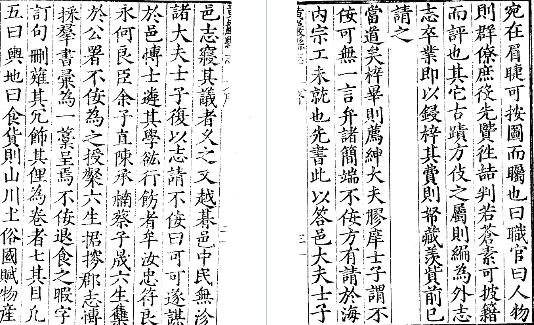 邑志寢其議者久之又越朞邑中民無沴
諸大夫士子復以志請不佞曰可可遂謀
於邑博士遴其學紘行飭者牟汝忠符良
永何良臣余子直陳承楠蔡子晟六生
於公署不佞為之授槩六生捃摭郡志博
採羣書彙為一藁呈焉不佞退食之暇字
訂句刪薙其冗飾其俚為卷者七其目凡
五曰輿地曰食貨則山川土俗國賦物産
宛在眉睫可按圖而矚也曰職官曰人物
則羣僚庶俊先賢往喆判若蒼素可披籍
而評也其它古蹟方伎之屬則編為外志
志卒業即以鋟梓其費則帑藏羨貲前已
請之
當道矣梓畢則薦紳大夫膠庠士子謂不
佞可無一言弁諸簡端不佞方有請於海
內宗工未就也先書此以答邑大夫士子